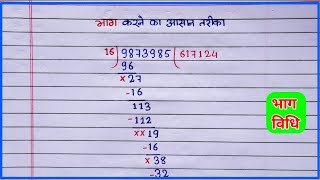 भाग करने का आसान तरीका
16) 9873985 (617124
96
×27
-16
113
-112
××19
-16
×38
-32
भाग
विधि